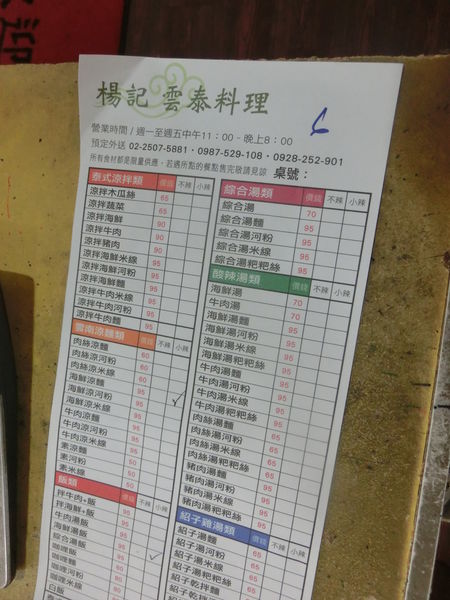 楊記 雲泰料理
6
營業時間 / 週一至週五中午11：00 - 晚上8：00
預定外送 02-2507-5881．0987-529-108．0928-252-901
所有食材都是限量供應，若遇所點的餐點售完敬請見諒 桌號：
泰式涼拌類 價錢 不辣 小辣
涼拌木瓜絲 65
涼拌蔬菜 65
涼拌海鮮 90
涼拌牛肉 90
涼拌豬肉 90
涼拌海鮮米線 95
涼拌海鮮河粉 95
涼拌海鮮麵 95
涼拌牛肉米線 95
涼拌牛肉河粉 95
涼拌牛肉麵 95
雲南涼麵類 價錢 不辣 小辣
肉絲涼麵 60
肉絲涼河粉 60
肉絲涼米線 60
海鮮涼麵 95
海鮮涼河粉 95
海鮮涼米線 95
牛肉涼麵 95
牛肉涼河粉 95
牛肉涼米線 95
素涼麵 50
素河粉 50
素米線 50
飯類 價錢 不辣 小辣
拌牛肉+飯 95
拌海鮮+飯 95
牛肉湯飯 95
海鮮湯飯 95
綜合湯飯 95
咖哩飯 95
咖哩麵 95
咖哩河粉 95
咖哩米線 95
白飯
綜合湯類 價錢 不辣 小辣
綜合湯 70
綜合湯麵 95
綜合湯河粉 95
綜合湯米線 95
綜合湯粑粑絲 95
酸辣湯類 價錢 不辣 小辣
海鮮湯 70
牛肉湯 70
海鮮湯麵 95
海鮮湯河粉 95
海鮮湯米線 95
海鮮湯粑粑絲 95
牛肉湯麵 95
牛肉湯河粉 95
牛肉湯米線 95
牛肉湯粑粑絲 95
肉絲湯麵 95
肉絲湯河粉 95
肉絲湯米線 95
肉絲湯粑粑絲 95
豬肉湯麵 95
豬肉湯河粉 95
豬肉湯米線 95
豬肉湯粑粑絲 95
紹子雞湯類 價錢 不辣 小辣
紹子湯麵 65
紹子湯河粉 65
紹子湯米線 65
紹子乾拌麵 65